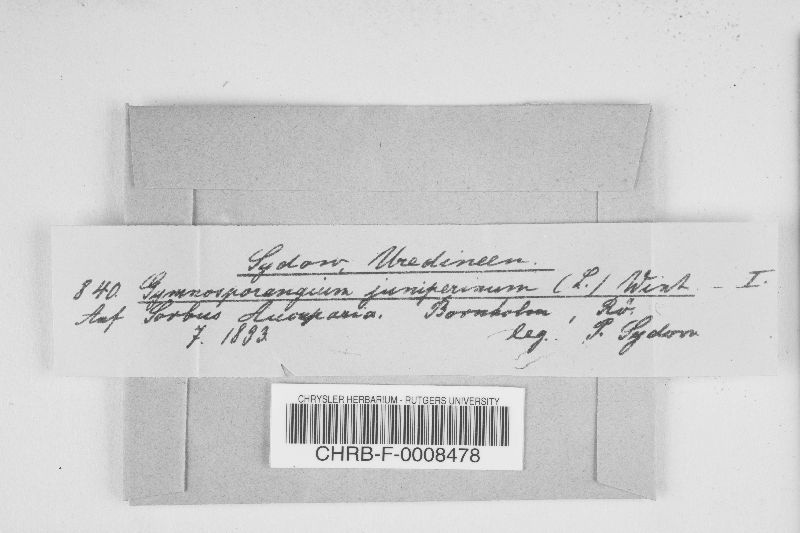 Sydow, Uredineen.
840. Gymnosporangium juniperinum (L.) Wint. - I.
Auf Sorbus Aucuparia. Bornholm, Rö.
7. 1893. leg. P. Sydow
CHRYSLER HERBARIUM - RUTGERS UNIVERSITY
CHRB-F-0008478